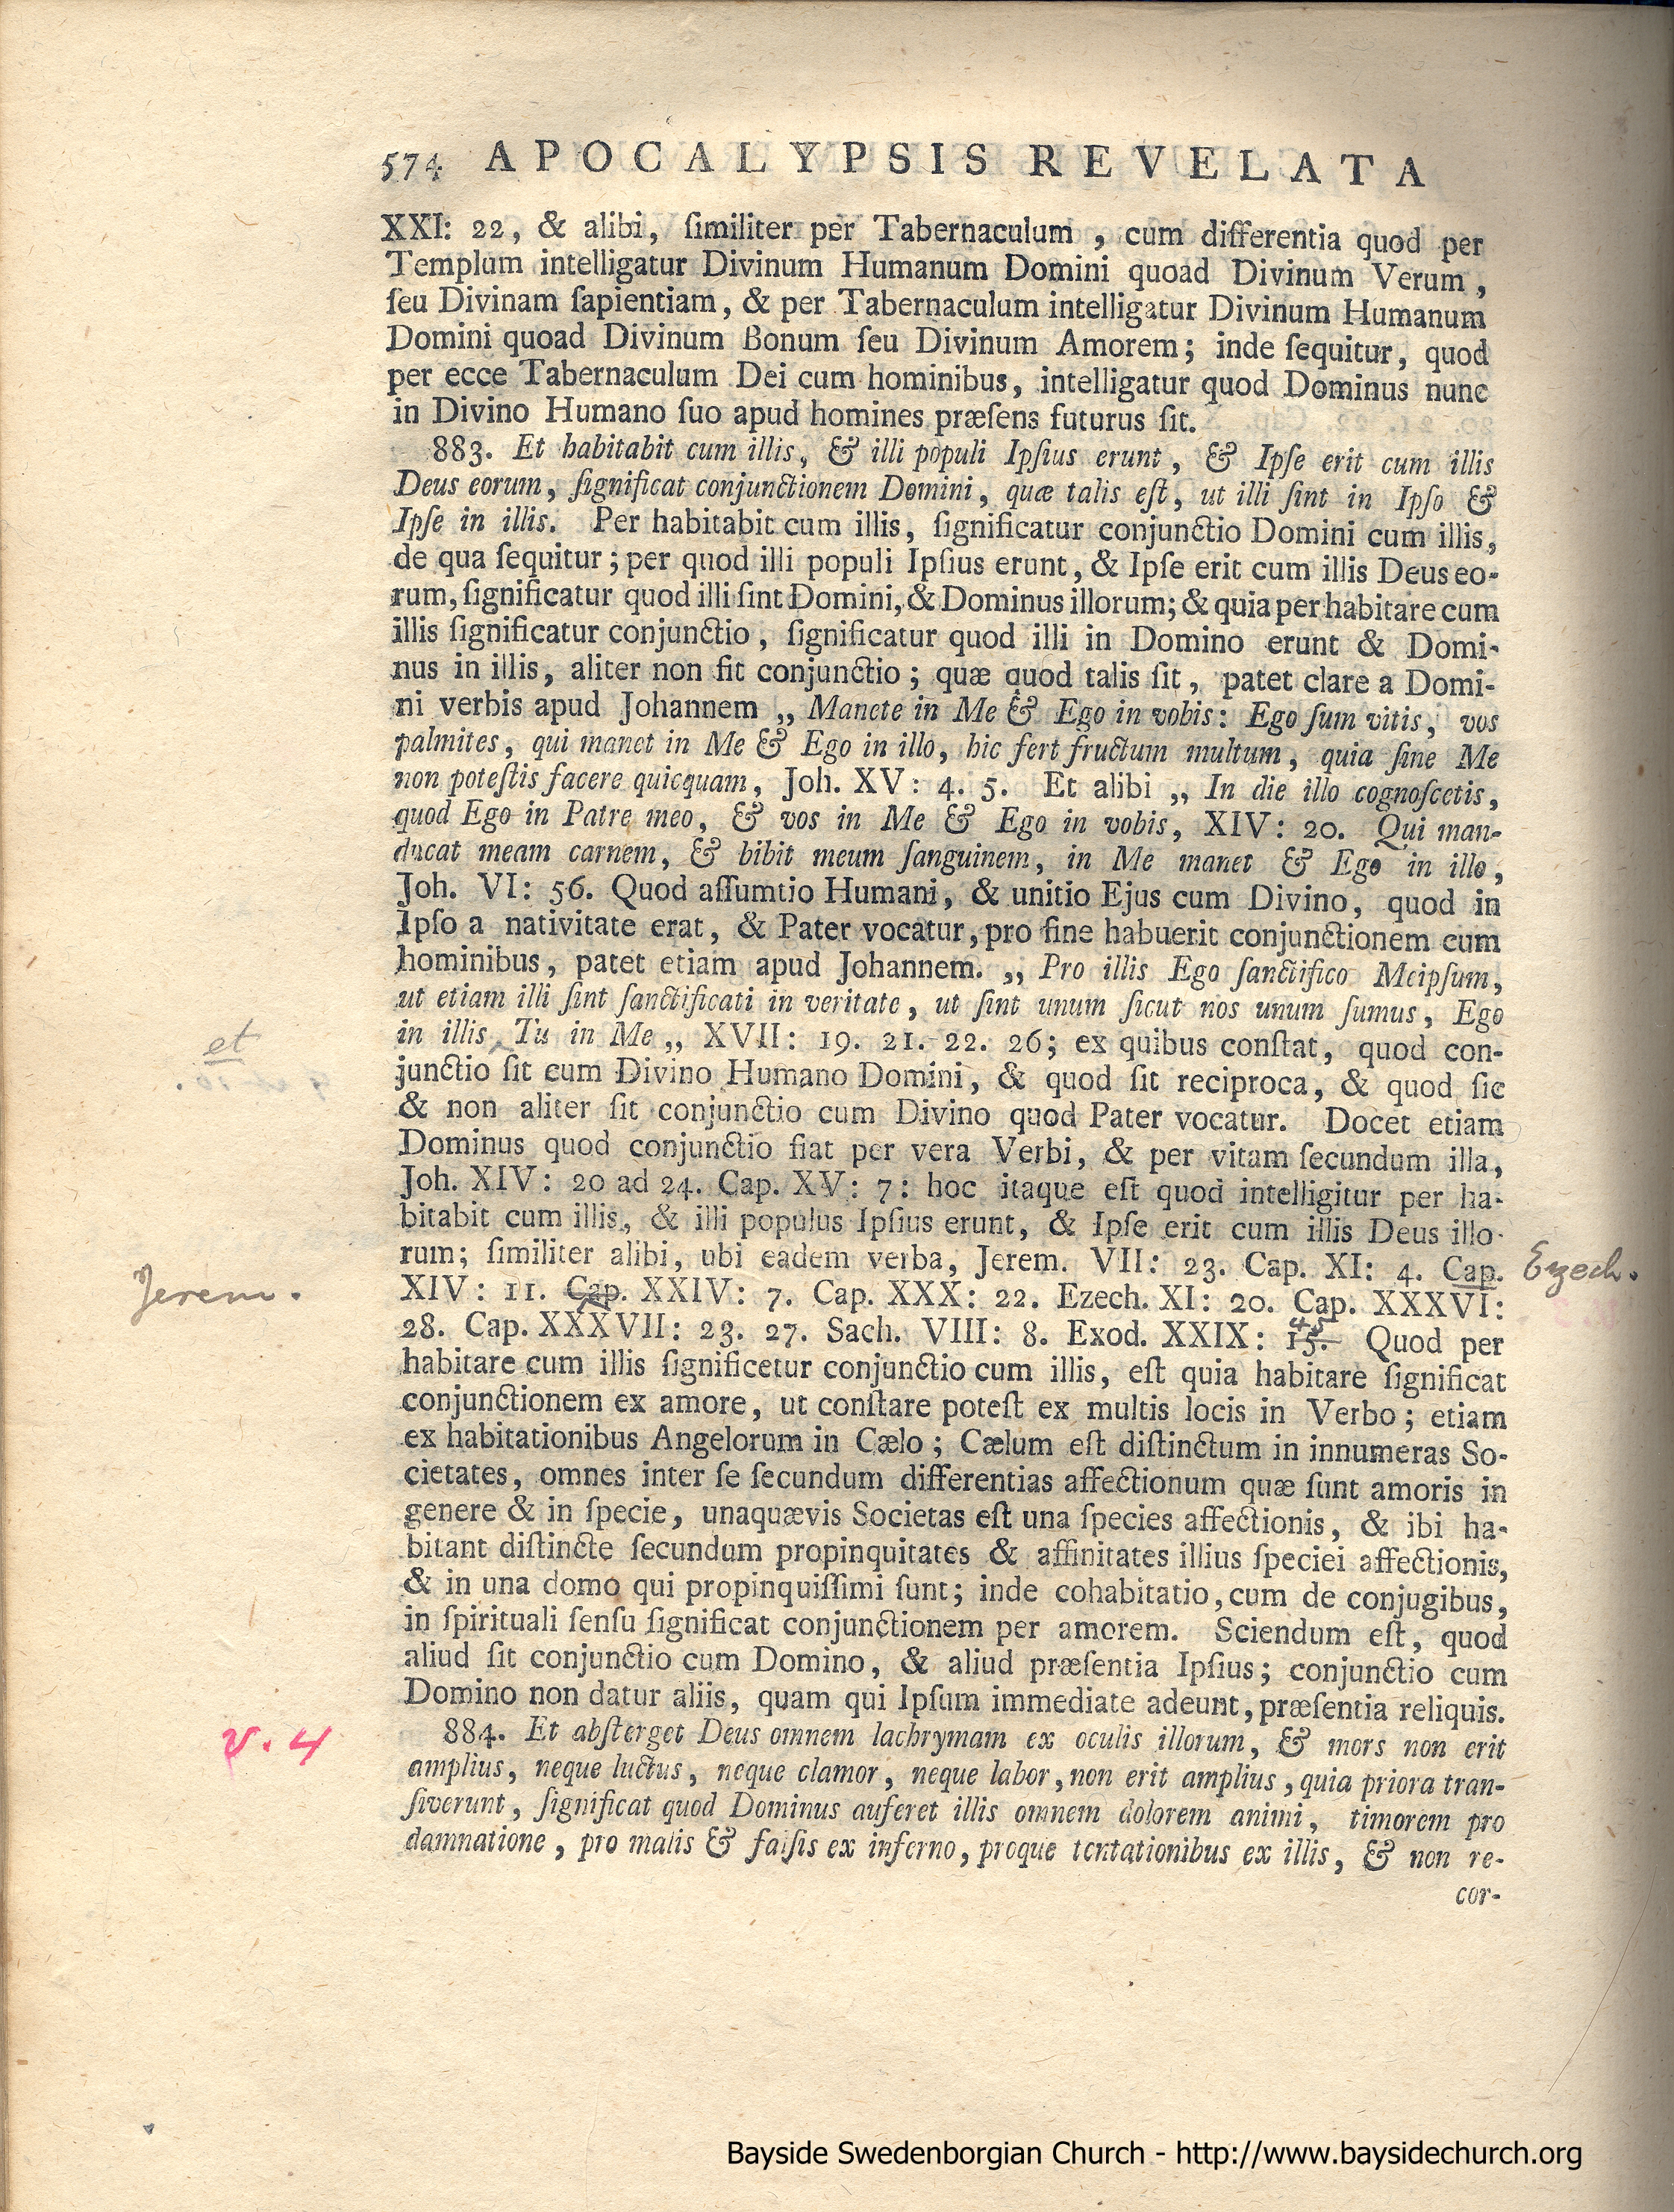 574 APOCALYPSIS REVELATA
XXI: 22, & alibi, ſimiliter per Tabernaculum, cum differentia quod per
Templum intelligatur Divinum Humanum Domini quoad Divinum Verum,
ſeu Divinam ſapientiam, & per Tabernaculum intelligatur Divinum Humanum
Domini quoad Divinum Bonum ſeu Divinum Amorem; inde ſequitur, quod
per ecce Tabernaculum Dei cum hominibus, intelligatur quod Dominus nunc
in Divino Humano ſuo apud homines præſens futurus ſit.
883. Et habitabit cum illis, & illi populi Ipſius erunt, & Ipſe erit cum illis
Deus eorum, ſignificat conjunctionem Domini, quæ talis eſt, ut illi ſint in Ipſo &
Ipſe in illis. Per habitabit cum illis, ſignificatur conjunctio Domini cum illis,
de qua ſequitur; per quod illi populi Ipſius erunt, & Ipſe erit cum illis Deus eo-
rum, ſignificatur quod illi ſint Domini, & Dominus illorum; & quia per habitare cum
illis ſignificatur conjunctio, ſignificatur quod illi in Domino erunt & Domi-
nus in illis, aliter non fit conjunctio; quæ quod talis ſit, patet clare a Domi-
ni verbis apud Johannem „ Manete in Me & Ego in vobis: Ego ſum vitis, vos
palmites, qui manet in Me & Ego in illo, hic fert fructum multum, quia ſine Me
non poteſtis facere quicquam, Joh. XV: 4. 5. Et alibi „ In die illo cognoſcetis,
quod Ego in Patre meo, & vos in Me & Ego in vobis, XIV: 20. Qui man-
ducat meam carnem, & bibit meum ſanguinem, in Me manet & Ego in illo,
Joh. VI: 56. Quod aſſumtio Humani, & unitio Ejus cum Divino, quod in
Ipſo a nativitate erat, & Pater vocatur, pro fine habuerit conjunctionem cum
hominibus, patet etiam apud Johannem. „ Pro illis Ego ſanctifico Meipſum,
ut etiam illi ſint ſanctificati in veritate, ut ſint unum ſicut nos unum ſumus, Ego
et
in illis Tu in Me „ XVII: 19. 21. 22. 26; ex quibus conſtat, quod con-
junctio ſit cum Divino Humano Domini, & quod ſit reciproca, & quod ſic
& non aliter ſit conjunctio cum Divino quod Pater vocatur. Docet etiam
Dominus quod conjunctio fiat per vera Verbi, & per vitam ſecundum illa,
Joh. XIV: 20 ad 24. Cap. XV: 7: hoc itaque eſt quod intelligitur per ha-
bitabit cum illis, & illi populus Ipſius erunt, & Ipſe erit cum illis Deus illo-
rum; ſimiliter alibi, ubi eadem verba, Jerem. VII: 23. Cap. XI: 4. Cap. Ezech.
Jerem. XIV: 11. Cap. XXIV: 7. Cap. XXX: 22. Ezech. XI: 20. Cap. XXXVI:
45
28. Cap. XXXVII: 23. 27. Sach. VIII: 8. Exod. XXIX: 15. Quod per
habitare cum illis ſignificetur conjunctio cum illis, eſt quia habitare ſignificat
conjunctionem ex amore, ut conſtare poteſt ex multis locis in Verbo; etiam
ex habitationibus Angelorum in Cælo; Cælum eſt diſtinctum in innumeras So-
cietates, omnes inter ſe ſecundum differentias affectionum quæ ſunt amoris in
genere & in ſpecie, unaquævis Societas eſt una ſpecies affectionis, & ibi ha-
bitant diſtincte ſecundum propinquitates & affinitates illius ſpeciei affectionis,
& in una domo qui propinquiſſimi ſunt; inde cohabitatio, cum de conjugibus,
in ſpirituali ſenſu ſignificat conjunctionem per amorem. Sciendum eſt, quod
aliud ſit conjunctio cum Domino, & aliud præſentia Ipſius; conjunctio cum
Domino non datur aliis, quam qui Ipſum immediate adeunt, præſentia reliquis.
v. 4 884. Et abſterget Deus omnem lachrymam ex oculis illorum, & mors non erit
amplius, neque luctus, neque clamor, neque labor, non erit amplius, quia priora tran-
ſiverunt, ſignificat quod Dominus auferet illis omnem dolorem animi, timorem pro
damnatione, pro malis & falſis ex inferno, proque tentationibus ex illis, & non re-
cor-
Bayside Swedenborgian Church - http://www.baysidechurch.org